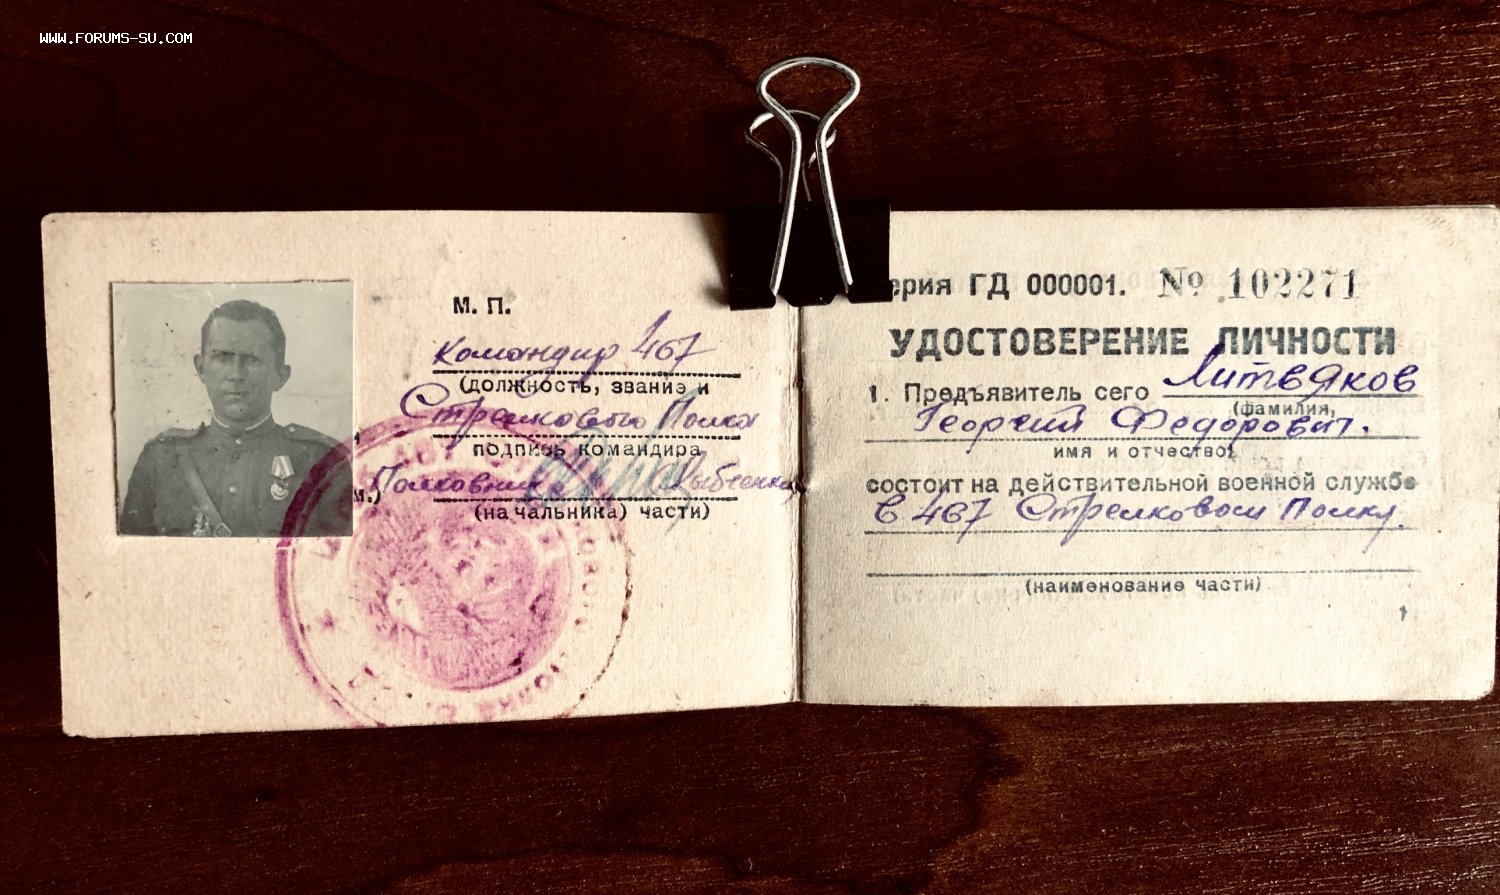 WWW.FORUMS-SU.COM
М. П.
Командир 467
(должность, звание и
Стрелкового Полка
подпись командира
м.) Полковник
(начальника) части)
ерия ГД 000001. № 102271
УДОСТОВЕРЕНИЕ ЛИЧНОСТИ
1. Предъявитель сего Литвяков
(фамилия,
Георгий Федорович.
имя и отчество)
состоит на действительной военной службе
в 467 Стрелковом Полку.
(наименование части)